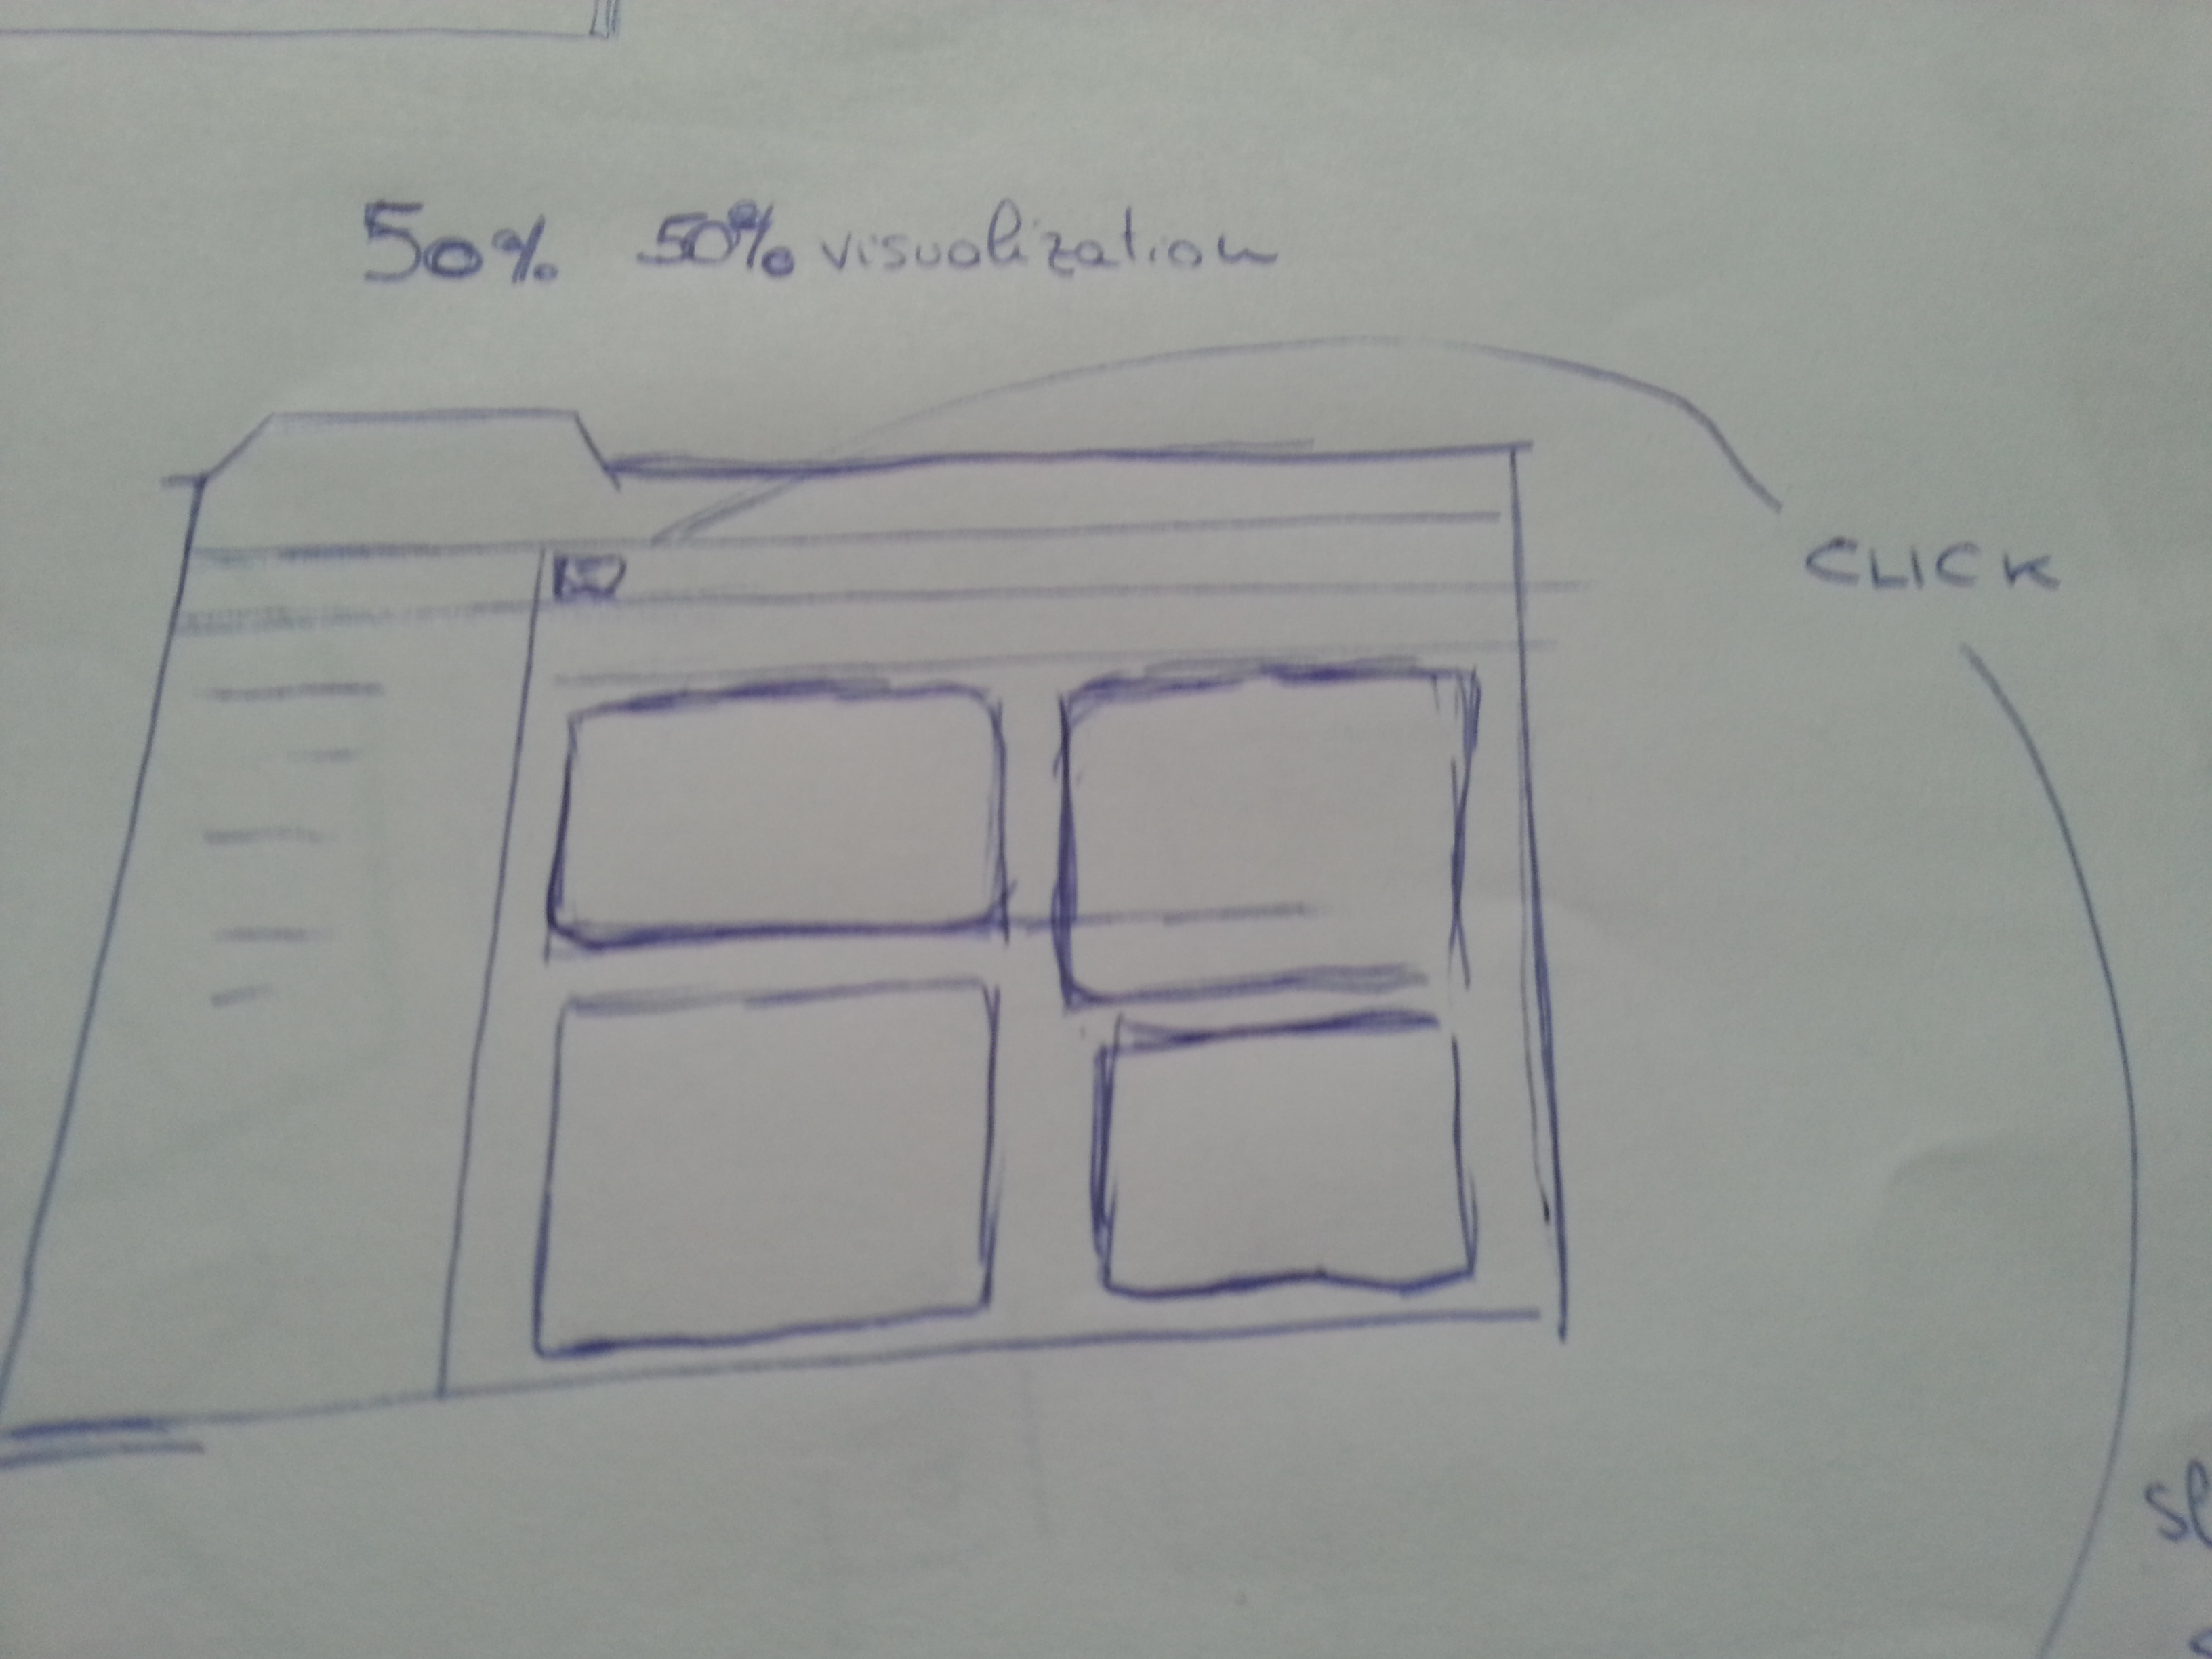 50% 50% visualization
CLICK